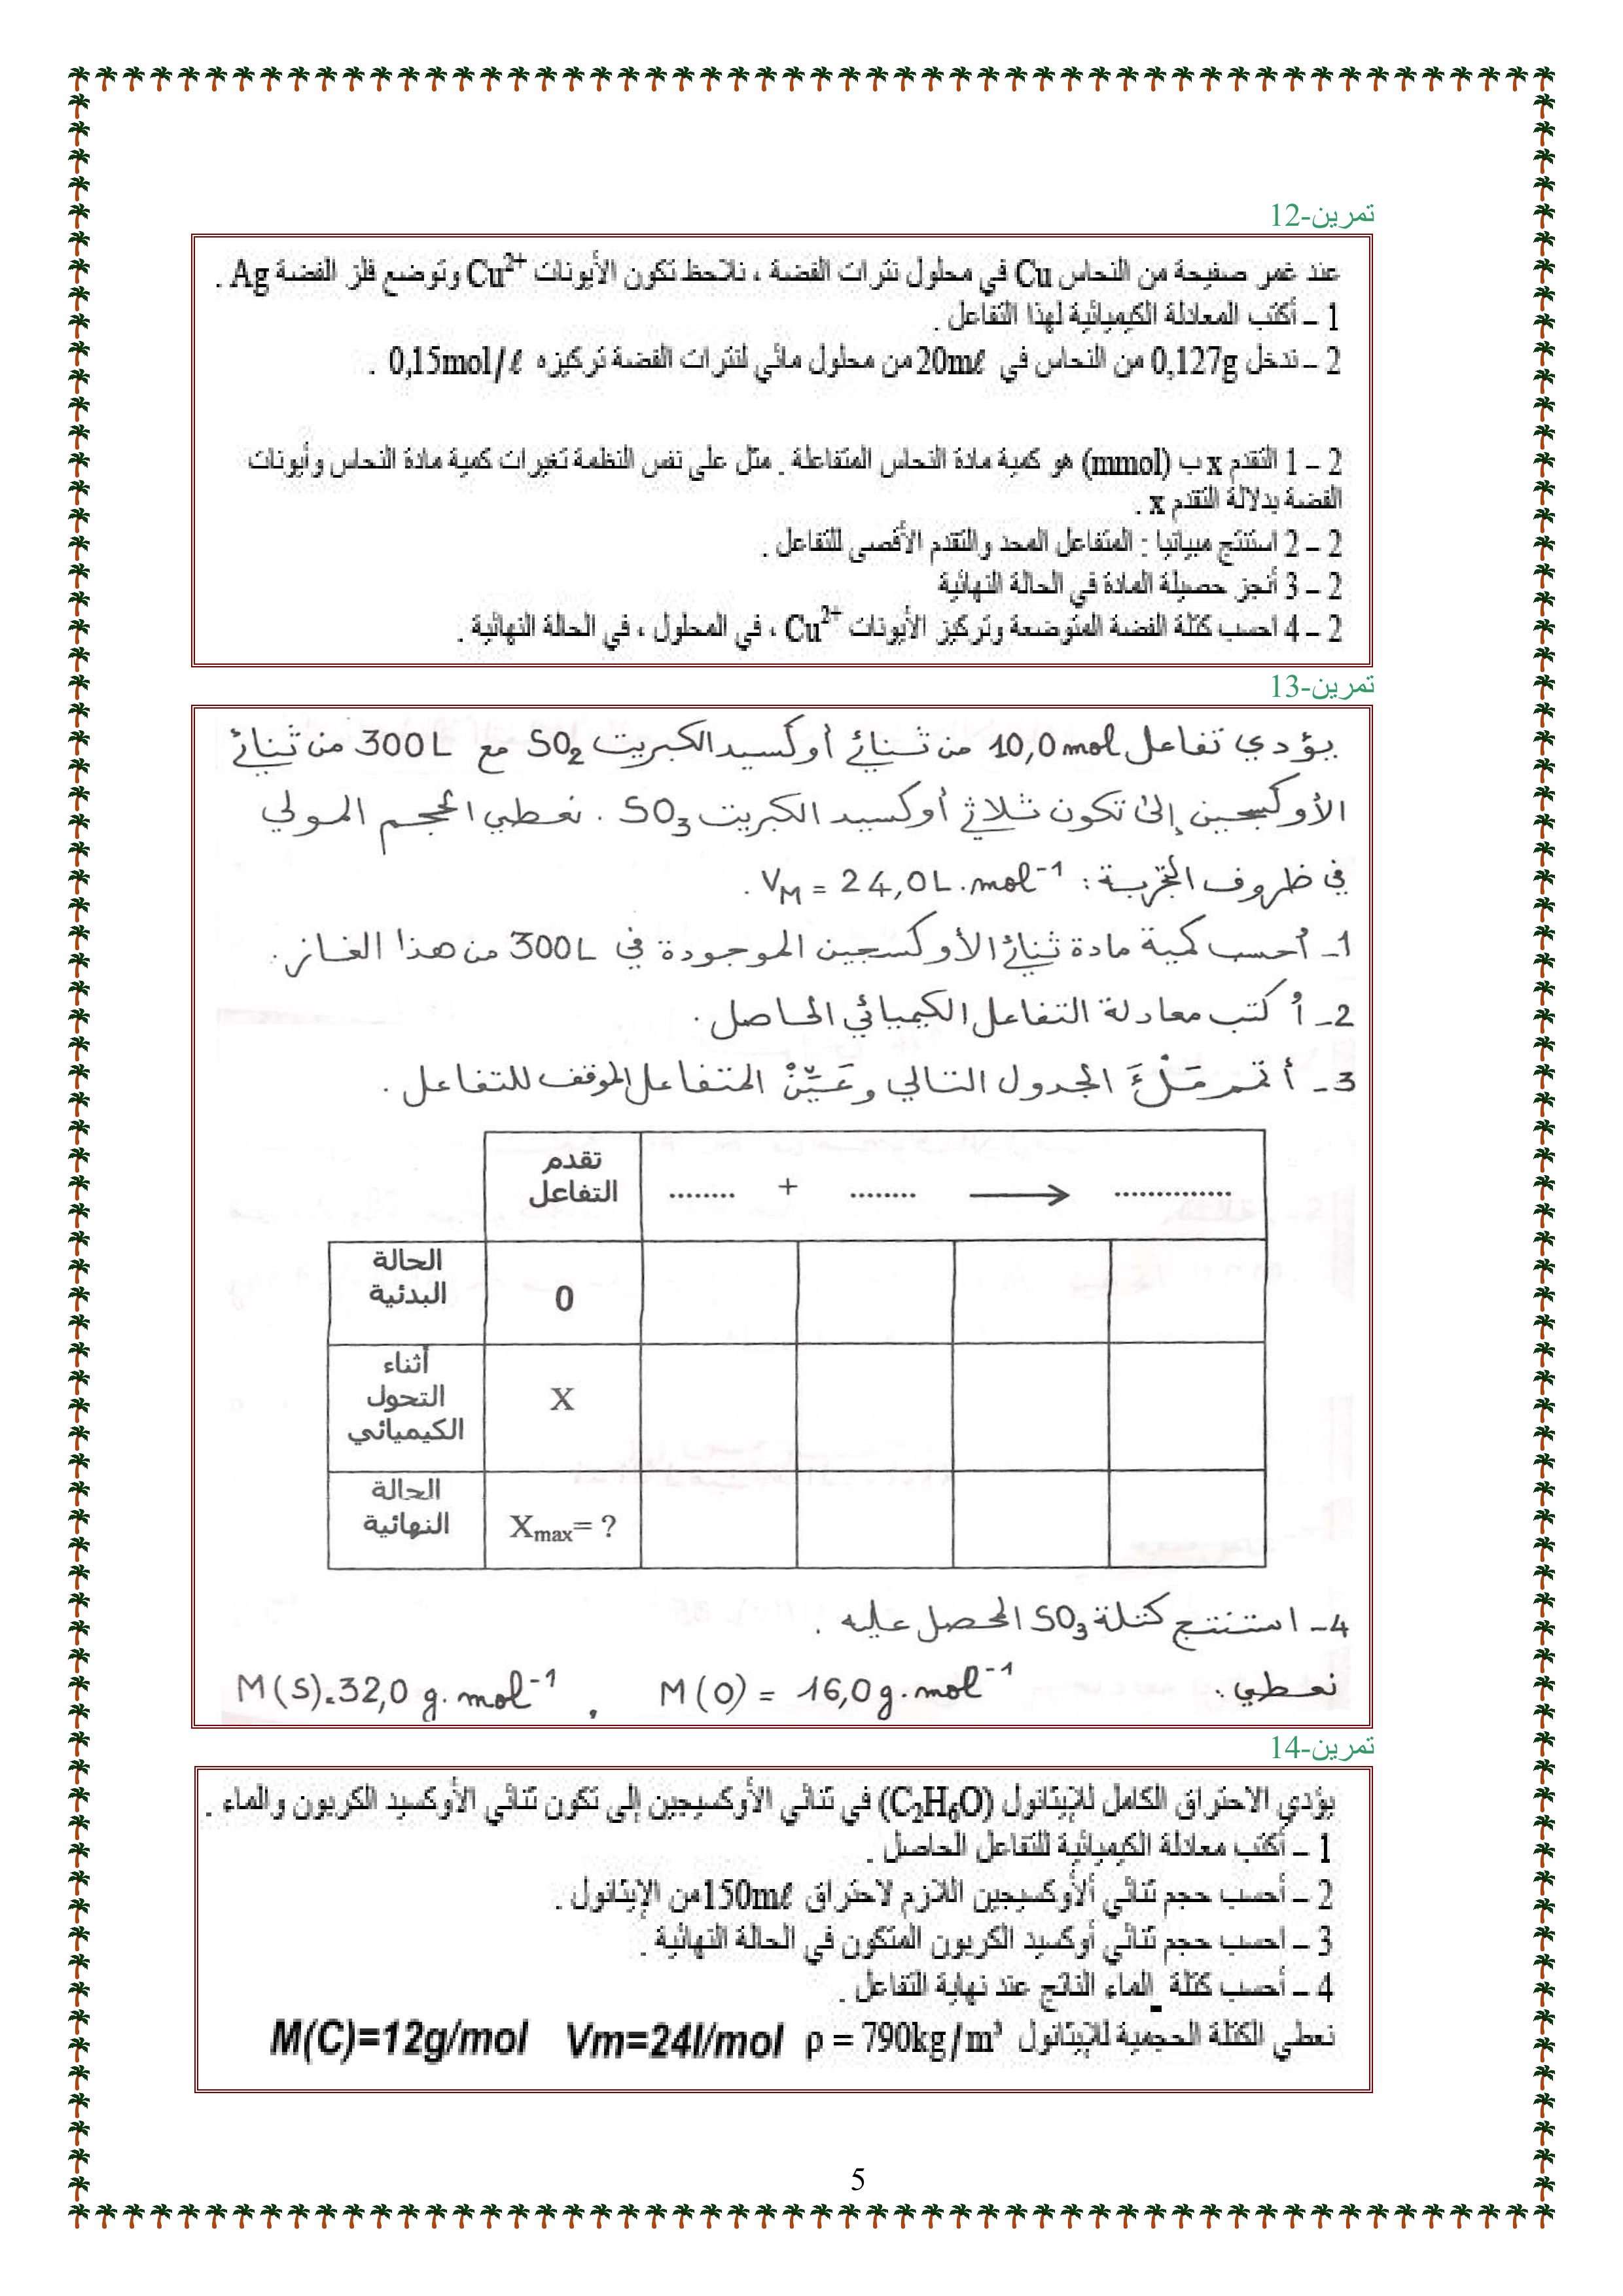 تمرين-12
عند غمر صفيحة من النحاس Cu في محلول نترات الفضة ، نلاحظ تكون الأيونات Cu²⁺ وتوضع فلز الفضة Ag .
1 – أكتب المعادلة الكيميائية لهذا التفاعل .
2 – ندخل 0,127g من النحاس في 20mℓ من محلول مائي لنترات الفضة تركيزه 0,15mol/ℓ .
2 – 1 التقدم x ب (mmol) هو كمية مادة النحاس المتفاعلة . مثل على نفس النظمة تغيرات كمية مادة النحاس وأيونات
الفضة بدلالة التقدم x .
2 – 2 استنتج مبيانيا : المتفاعل المحد والتقدم الأقصى للتفاعل .
2 – 3 أنجز حصيلة المادة في الحالة النهائية
2 – 4 احسب كتلة الفضة المتوضعة وتركيز الأيونات Cu²⁺ ، في المحلول ، في الحالة النهائية .
تمرين-13
يؤدي تفاعل 10,0 mol من ثنائي أوكسيد الكبريت SO₂ مع 300L من ثنائي
الأوكسجين إلى تكون ثلاثي أوكسيد الكبريت SO₃ . نعطي الحجم المولي
في ظروف التجربة : V_M = 24,0L.mol⁻¹ .
1- أحسب كمية مادة ثنائي الأوكسجين الموجودة في 300L من هذا الغاز .
2- أكتب معادلة التفاعل الكيميائي الحاصل .
3- أتمم مَلْءَ الجدول التالي وعَيِّنْ المتفاعل الموقف للتفاعل .
تقدم
التفاعل
........ + ........ ⟶ ..............
الحالة
البدئية
0
أثناء
التحول
الكيميائي
X
الحالة
النهائية
Xmax= ?
4- استنتج كتلة SO₃ المحصل عليه .
نعطي : M(O) = 16,0 g.mol⁻¹ , M(S)=32,0 g.mol⁻¹
تمرين-14
يؤدي الاحتراق الكامل للإيثانول (C₂H₆O) في ثنائي الأوكسيجين إلى تكون ثنائي الأوكسيد الكربون والماء .
1 – أكتب معادلة الكيميائية للتفاعل الحاصل .
2 – أحسب حجم ثنائي ألأوكسيجين اللازم لاحتراق 150mℓ من الإيثانول .
3 – احسب حجم ثنائي أوكسيد الكربون المتكون في الحالة النهائية .
4 – أحسب كتلة الماء الناتج عند نهاية التفاعل .
نعطي الكتلة الحجمية للإيثانول ρ = 790kg/m³ Vm=24l/mol M(C)=12g/mol
5